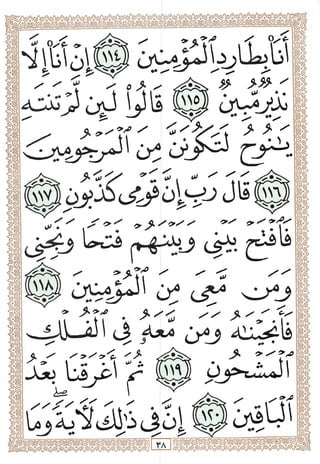 أَنَا۠ بِطَارِدِ ٱلْمُؤْمِنِينَ ١١٤ إِنْ أَنَا۠ إِلَّا
نَذِيرٌ مُّبِينٌ ١١٥ قَالُوا۟ لَئِن لَّمْ تَنتَهِ
يَـٰنُوحُ لَتَكُونَنَّ مِنَ ٱلْمَرْجُومِينَ
١١٦ قَالَ رَبِّ إِنَّ قَوْمِى كَذَّبُونِ ١١٧
فَٱفْتَحْ بَيْنِى وَبَيْنَهُمْ فَتْحًا وَنَجِّنِى
وَمَن مَّعِىَ مِنَ ٱلْمُؤْمِنِينَ ١١٨
فَأَنجَيْنَـٰهُ وَمَن مَّعَهُۥ فِى ٱلْفُلْكِ
ٱلْمَشْحُونِ ١١٩ ثُمَّ أَغْرَقْنَا بَعْدُ
ٱلْبَاقِينَ ١٢٠ إِنَّ فِى ذَٰلِكَ لَـَٔايَةً ۖ وَمَا
٣٨